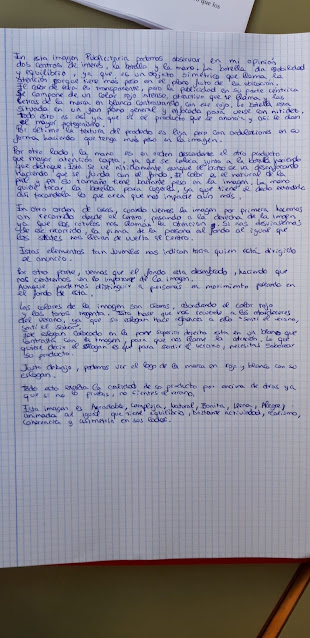 En esta imagen Publicitaria podemos observar en mi opinión
dos centros de interés, la botella y la mano. La botella da estabilidad
y equilibrio, ya que es un objeto simétrico que llama la
atención porque tiene más peso en el plano fruto de la ubicación.
de color es transparente, pero la publicidad en su parte céntrica
se compone de un color rojo intenso, atractivo que te llama, y las
letras de la marca en blanco contrastando con ese rojo. La botella está
situada en un gran plano general y enfocada para verse con nitidez,
todo esto es debido a que el producto que se anuncia y así le dan
el mayor protagonismo.
Por último la textura del producto es lisa pero con ondulaciones en su
forma haciendo que tenga más peso en la imagen.
Por otro lado, la mano es en orden descendente el otro producto
que mayor atención capta, ya que se coloca junto a la botella haciendo
que destaque. Esto se ve nítidamente aunque el brazo se va desenfocando
haciendo que se funda con el fondo. El color es el natural de la
piel y por el tamaño tiene bastante peso en la imagen. La mano
quiere tocar la botella para cogerla, ya que tiene el dedo estirado
casi tocándola lo que crea que nos impacte aún más.
En otro orden de cosas, cuando vemos la imagen por primera hacemos
un recorrido desde el centro pasando a la derecha de la imagen,
ya que los rótulos nos llaman la atención y si nos desviásemos
de ese recorrido, la pierna de la persona al fondo al igual que
los nos llevan de vuelta al centro.
Estos elementos tan juveniles nos indican hacia quien está dirigido
el anuncio.
Por otra parte, vemos que el fondo está desenfocado, haciendo que
nos centremos en lo importante de la imagen.
Aunque podemos distinguir a personas en movimiento pasando en
el fondo de ésta.
Los colores de la imagen son claros, abundando el color rojo
y los tonos . Esto hace que nos recuerde a los atardeceres
del verano, ya que su eslogan hace a ello "sentir el verano,
sentir el sabor".
Este eslogan colocado en la parte superior derecha está en un blanco que
contrasta con la imagen, para que nos llame la atención. Lo que
quiere decir el eslogan es que para sentir el verano, necesitas saborear
su producto.
Justo debajo, podemos ver el logo de la marca en rojo y blanco con su
eslogan.
Todo esto la calidad de su producto por encima de otras ya
que si no lo pruebas, no sientes el verano.
Esta imagen es Agradable, Compleja, Natural, Bonita, Llena, Alegre,
animada al igual que tiene equilibrio, bastante actividad, realismo,
coherencia y asimetría en sus lados.